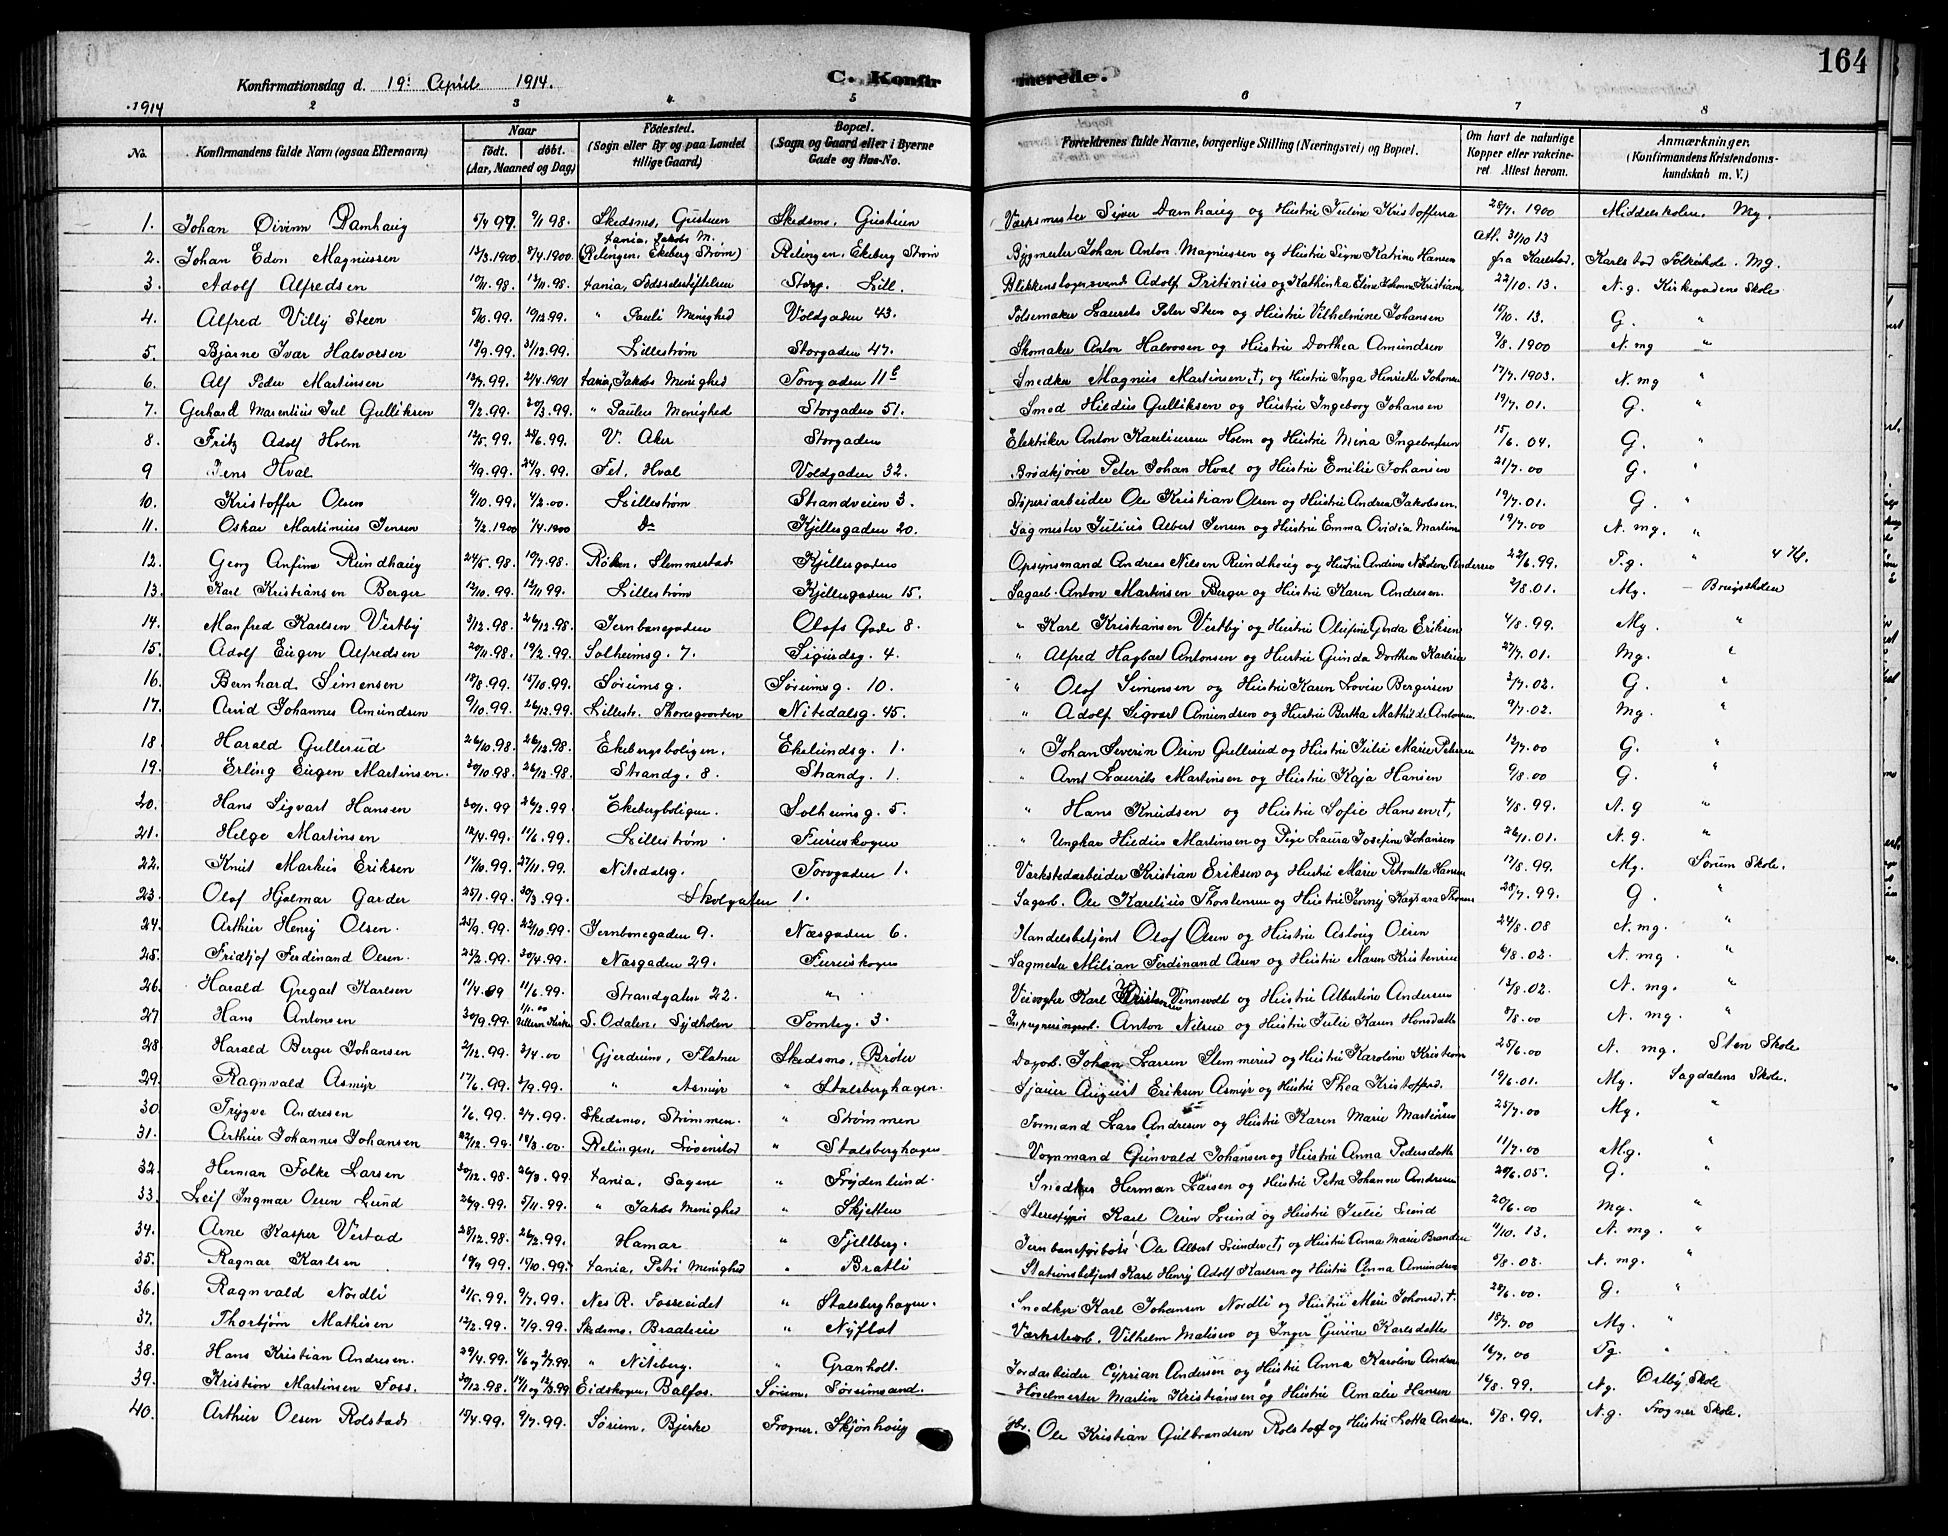 164
Konfirmationsdag d. 19: April 1914.
C. Konfirmerede.
1914 2 3 4 5 6 7 8
No. Konfirmandens fulde Navn (ogsaa Efternavn) Naar født. døbt. (Aar, Maaned og Dag) Fødested. (Sogn eller By og paa Landet tillige Gaard) Bopæl. (Sogn og Gaard eller i Byerne Gade og Hus-No. Forældrenes fulde Navne, borgerlige Stilling (Næringsvei) og Bopæl. Om havt de naturlige Kopper eller vakcineret. Attest herom. Anmærkninger. (Konfirmandens Kristendomskundskab m. V.)
1. Johan Oivinn Damhaug 5/4 97 9/1 98. Skedsmo, Gustuen Skedsmo, Gustuen Værksmester Syver Damhaug og Hustru Juline Kristoffersen 28/7. 1900 Middelskolen. Mg.
2. Johan Edon Magnussen 13/3.1900 8/4.1900. Xania, Jakobs M. (Rælingen, Ekeberg Strøm) Rælingen, Ekeberg Strøm Bygmester Johan Anton Magnussen og Hustru Signe Katrine Hansen Att. 31/10 13 fra Karlstad. Karlstad Folkeskole. Mg.
3. Adolf Alfredsen 10/11. 98. 13/11. 98. Xania, Fødselsstiftelsen Storg. Lill. Blikkenslagersvend Adolf og Kathinka Eline Johanne Kristians 22/10. 13. N. g. Kirkegadens Skole
4. Alfred Villy Steen 5/10. 99. 10/12.99. " Pauli Menighed Voldgaden 43. Pølsemaker Laurits Peter Steen og Hustru Vilhelmine Johansen 15/10. 13. G. "
5. Bjarne Ivar Halvorsen 18/9.99. 31/12.99. Lillestrøm Storgaden 47. Skomaker Anton Halvosen og Hustru Dorthea Amundsen 9/8. 1900 N. mg "
6. Alf Peder Martinsen 13/7. 99. 21/4.1901 Xania, Jakobs Menighed Torvgaden 11 Snedker Magnus Martinsen, †, og Hustru Inga Henriette Johansen 17/7.1903. N. mg "
7. Gerhard Marentius Jul Gulliksen 9/2.99. 20/3.99. " Paulus Menighed Storgaden 51. Smed Hildus Gulliksen og Hustru Ingeborg Johansen 19/7. 01. G. "
8. Fritz Adolf Holm 12/5. 99. 24/6. 99. V. Aker Storgaden Elektriker Anton Kareliussen Holm og Hustru Mina Ingebretsen 15/6. 04. G. "
9 Jens Hval 4/9. 99. 24/9. 99. Fet, Hval Voldgaden 32. Brødkjører Peter Johan Hval og Hustru Emilie Johansen 21/7. 00 G. "
10. Kristoffer Olsen 9/10. 99. 4/2. 00. Lillestrøm Strandveien 3. Ole Kristian Olsen og Hustru Andrea Jakobsen. 19/7. 01. G. "
11. Oskar Martinius Jensen 7/2. 1900 1/4. 1900 Do Kjellergaden 20. Sagmester Julius Albert Jensen og Hustru Emma Ovidia Martins 19/7. 00 N. mg. "
12. Georg Anfinn Rundhaug 24/5. 98. 10/7. 98. Røken, Slemmestad Kjellergaden Opsynsmand Andreas Nilsen Rundhaug og Hustru Andersen 22/6. 99. T.g. " 4 Kl.
13. Karl Kristiansen Berger 12/10. 99. 12/11 99. Lillestrøm Kjellergaden 15. Sagarb. Anton Martinsen Berger og Hustru Karen Andresen. 2/8. 01. Mg. — Brugsskolen
14. Manfred Karlsen Vestby 3/12. 98. 26/12. 98. Jernbanegaden Olafs Gade 8. " Karl Kristiansen Vestby og Hustru Olufine Gerda Eriksen 4/8. 99. Mg. "
15. Adolf Eugen Alfredsen 20/11. 98. 19/2. 99. Solheimsg. 7. Sigurdsg. 4. " Alfred Hagbart Antonsen og Hustru Gunda Dorthea 27/7. 01. Mg. "
16. Bernhard Simensen 18/8. 99. 15/10. 99. Sørumsg. Sørumsg. 10. " Olof Simensen og Hustru Karen Lovise Bergersen 3/7. 02. G. "
17. Arvid Johannes Amundsen 9/10. 99. 26/12. 99. Lillestr. Thoresgaarden Nitedalsg. 45. " Adolf Sigvart Amundsen og Hustru Bertha Mathilde Antonsen 9/7. 02. Mg. "
18. Harald Gullerud 26/10. 98. 26/12. 98. Ekebergboligen. Ekelundsg. 1. " Johan Severin Olsen Gullerud og Hustru Julie Marie Petersen 12/7. 00 G. "
19. Erling Eugen Martinsen. 30/10. 98. 26/12. 98. Strandg. 8. Strandg. 1. " Arnt Laurits Martinsen og Hustru Kaja Hansen 9/8. 00 G. "
20. Hans Sigvart Hansen 30/1. 99 26/2. 99. Ekebergboligen. Solheimsg. 5. " Hans Knudsen og Hustru Sofie Hansen, †, 4/8. 99. N. g "
21. Helge Martinsen 12/4. 99. 11/6. 99. Lillestrøm Furuskogen " Ungkar Hildus Martinsen og Pige Laura Josefine Johansen 26/1. 01. N. g. "
22. Knut Markus Eriksen 14/10. 99. 27/11. 99. Nitedalsg. Torvgaden 1. Værkstedarbeider Kristian Eriksen og Hustru Marie Petronella Hansen 17/8. 99. Mg. Sørum Skole.
23. Olof Hjalmar Garder 25/1. 99. 30/3. 99. Skolgaten 1. Sagarb. Ole Karelius Thorstensen og Hustru Jenny 28/7. 99. G. "
24. Arthur Henry Olsen. 25/9. 99. 22/10. 99. Jernbanegaden 9. Næsgaden 6. Handelsbetjent Olof Olsen og Hustru Aslaug Olsen 24/8. 08 N. mg. "
25. Fridtjof Ferdinand Olsen. 25/2. 99. 30/4. 99. Næsgaden 29. Furuskogen Sagmester Milian Ferdinand Olsen og Hustru Maren Kristensen 6/8. 02. N. mg. "
26. Harald Gregart Karlsen 11/4. 99 11/6. 99. Strandgaten 22. " Veivogter Karl Kristensen Vennevolt og Hustru Albertine Andersen 13/8. 02. N. mg. "
27 Hans Antonsen 30/9. 99. 1/1. 00 Ullern Kirke S. Odalen, Sydholen Tomteg. 3. Impregneringsarb. Anton Nilsen og Hustru Julie Karen Hansdatter 8/8. 00 N. mg. "
28 Harald Berger Johansen 2/12. 99. 3/4. 00 Gjerdrum, Flatner Skedsmo, Brøter Dagarb. Johan Larsen Slemmerud og Hustru Karoline Kristians 25/6. 00 N. mg. Sten Skole
29. Ragnvald Asmyr 17/6. 99. 3/9. 99. " Asmyr " Stalsberghagen. Sjauer August Eriksen Asmyr og Hustru Thea Kristoffersd. 19/6. 01. Mg. Sagdalens Skole.
30. Trygve Andresen 1/6. 99. 2/7. 99. Skedsmo, Strømmen. " Strømmen Formand Lars Andresen og Hustru Karen Marie Martinsen 25/7. 00 Mg. "
31. Arthur Johannes Johansen 22/12. 99. 18/3. 00. Rælingen, Løvenstad " Stalsberghagen Vognmand Gunvald Johansen og Hustru Anna Pedersdatter 11/7. 00 Mg. "
32. Herman Folke Larsen 30/12. 98. 26/3. 99. Xania, Sagene " Frydenlund. Snedker Herman Larsen og Hustru Petra Johanne Andersen 20/6. 05. G. "
33. Leif Ingmar Olsen Lund 26/9. 99. 5/11. 99. " Jakobs Menighed " Skjetten Stereotypør Karl Olsen Lund og Hustru Julie Lund 20/6. 00 Mg. "
34. Arne Kasper Vestad 28/12. 98. 26/2. 99. Hamar " Fjellberg. Ole Albert, †, og Hustru Anna Marie 4/10. 13. N. mg. "
35. Ragnar Karlsen 19/4 99. 15/10. 99. Xania, Petri Menighed " Bratli Stationsbetjent Karl Henry Adolf Karlsen og Hustru Anna Amundsen 5/8. 03. N. mg. "
36. Ragnvald Nordli 31/5. 99. 9/7. 99. Nes R. Fosseidet " Stalsberghagen. Snedker Karl Johansen Nordli og Hustru Marie Johansd. †. 28/6. 00. G. "
37. Thorbjørn Mathisen 12/2. 99. 7/9. 99. Skedsmo, Braateie " Nyflot Værkstarb. Vilhelm Matisen og Inger Gurine Karlsdatter 18/7. 00 Mg. "
38. Hans Kristian Andresen. 29/4. 99. 4/6 og 2/7. 99. " Niteberg. " Granholt. Jordarbeider Cyprian Andersen og Hustru Anna Karoline Andrea 16/7. 00 Tg. "
39. Kristian Martinsen Foss. 30/12. 98. Eidskogen, Balfos. Sørum, Sørumsand. Høvelmester Martin Kristiansen og Hustru Amalie Hansen 16/8. 99. Ng. Ørlby Skole
40. Arthur Olsen Rolstad 15/4. 99. 9/7. 99. Sørum, Bjerke Frogner, Skjønhaug Gbr. Ole Kristian Gulbrandsen Rolstad og Hustru Lotta Anders. 5/8. 99. N. g. Frogner Skole.